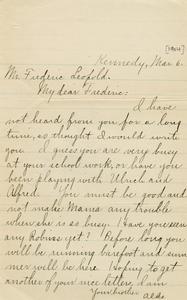 [1904]
Kennedy, Mar 6.
Mr. Frederic Leopold.
My dear Frederic:
I have
not heard from you for a long
time, so thought I would write
you. I guess you are very busy
at your school work, or have you
been playing with Ulrich and
Alfred. You must be good and
not make Mama any trouble
when she is so busy. Have you seen
any Robins yet? Before long you
will be running barefoot and sum
mer will be here. Hoping to get
another of your nice letters, I am
Your brother